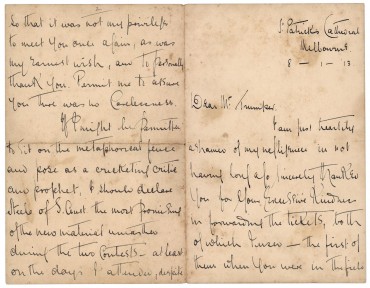 St Patrick's Cathedral
Melbourne
8 - 1 - 13
Dear Mr. Trumper
I am just heartily
ashamed of my negligence in not
having long ago sincerely thanked
you for your kindness
in forwarding the tickets, both
of which I used - the first of
them when you were in the field
So that it was not my privilege
to meet you once again, as was
my earnest wish, and to personally
thank you. Permit me to assure
you there was no carelessness.
If I might be permitted
to sit on the metaphorical fence
and pose as a cricketing critic
and prophet, I should declare
of S. Aust the most promising
of the new material unearthed
during the two contests - at least
on the days I attended, despite